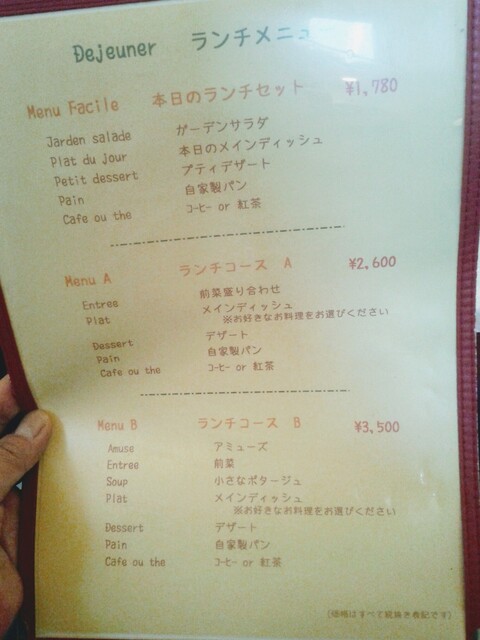 Dejeuner ランチメニュー
Menu Facile 本日のランチセット ¥1,780
Jarden salade ガーデンサラダ
Plat du jour 本日のメインディッシュ
Petit dessert プティデザート
Pain 自家製パン
Cafe ou the コーヒー or 紅茶
Menu A ランチコース A ¥2,600
Entree 前菜盛り合わせ
Plat メインディッシュ
※お好きなお料理をお選びください
Dessert デザート
Pain 自家製パン
Cafe ou the コーヒー or 紅茶
Menu B ランチコース B ¥3,500
Amuse アミューズ
Entree 前菜
Soup 小さなポタージュ
Plat メインディッシュ
※お好きなお料理をお選びください
Dessert デザート
Pain 自家製パン
Cafe ou the コーヒー or 紅茶
(価格はすべて税抜き表記です)